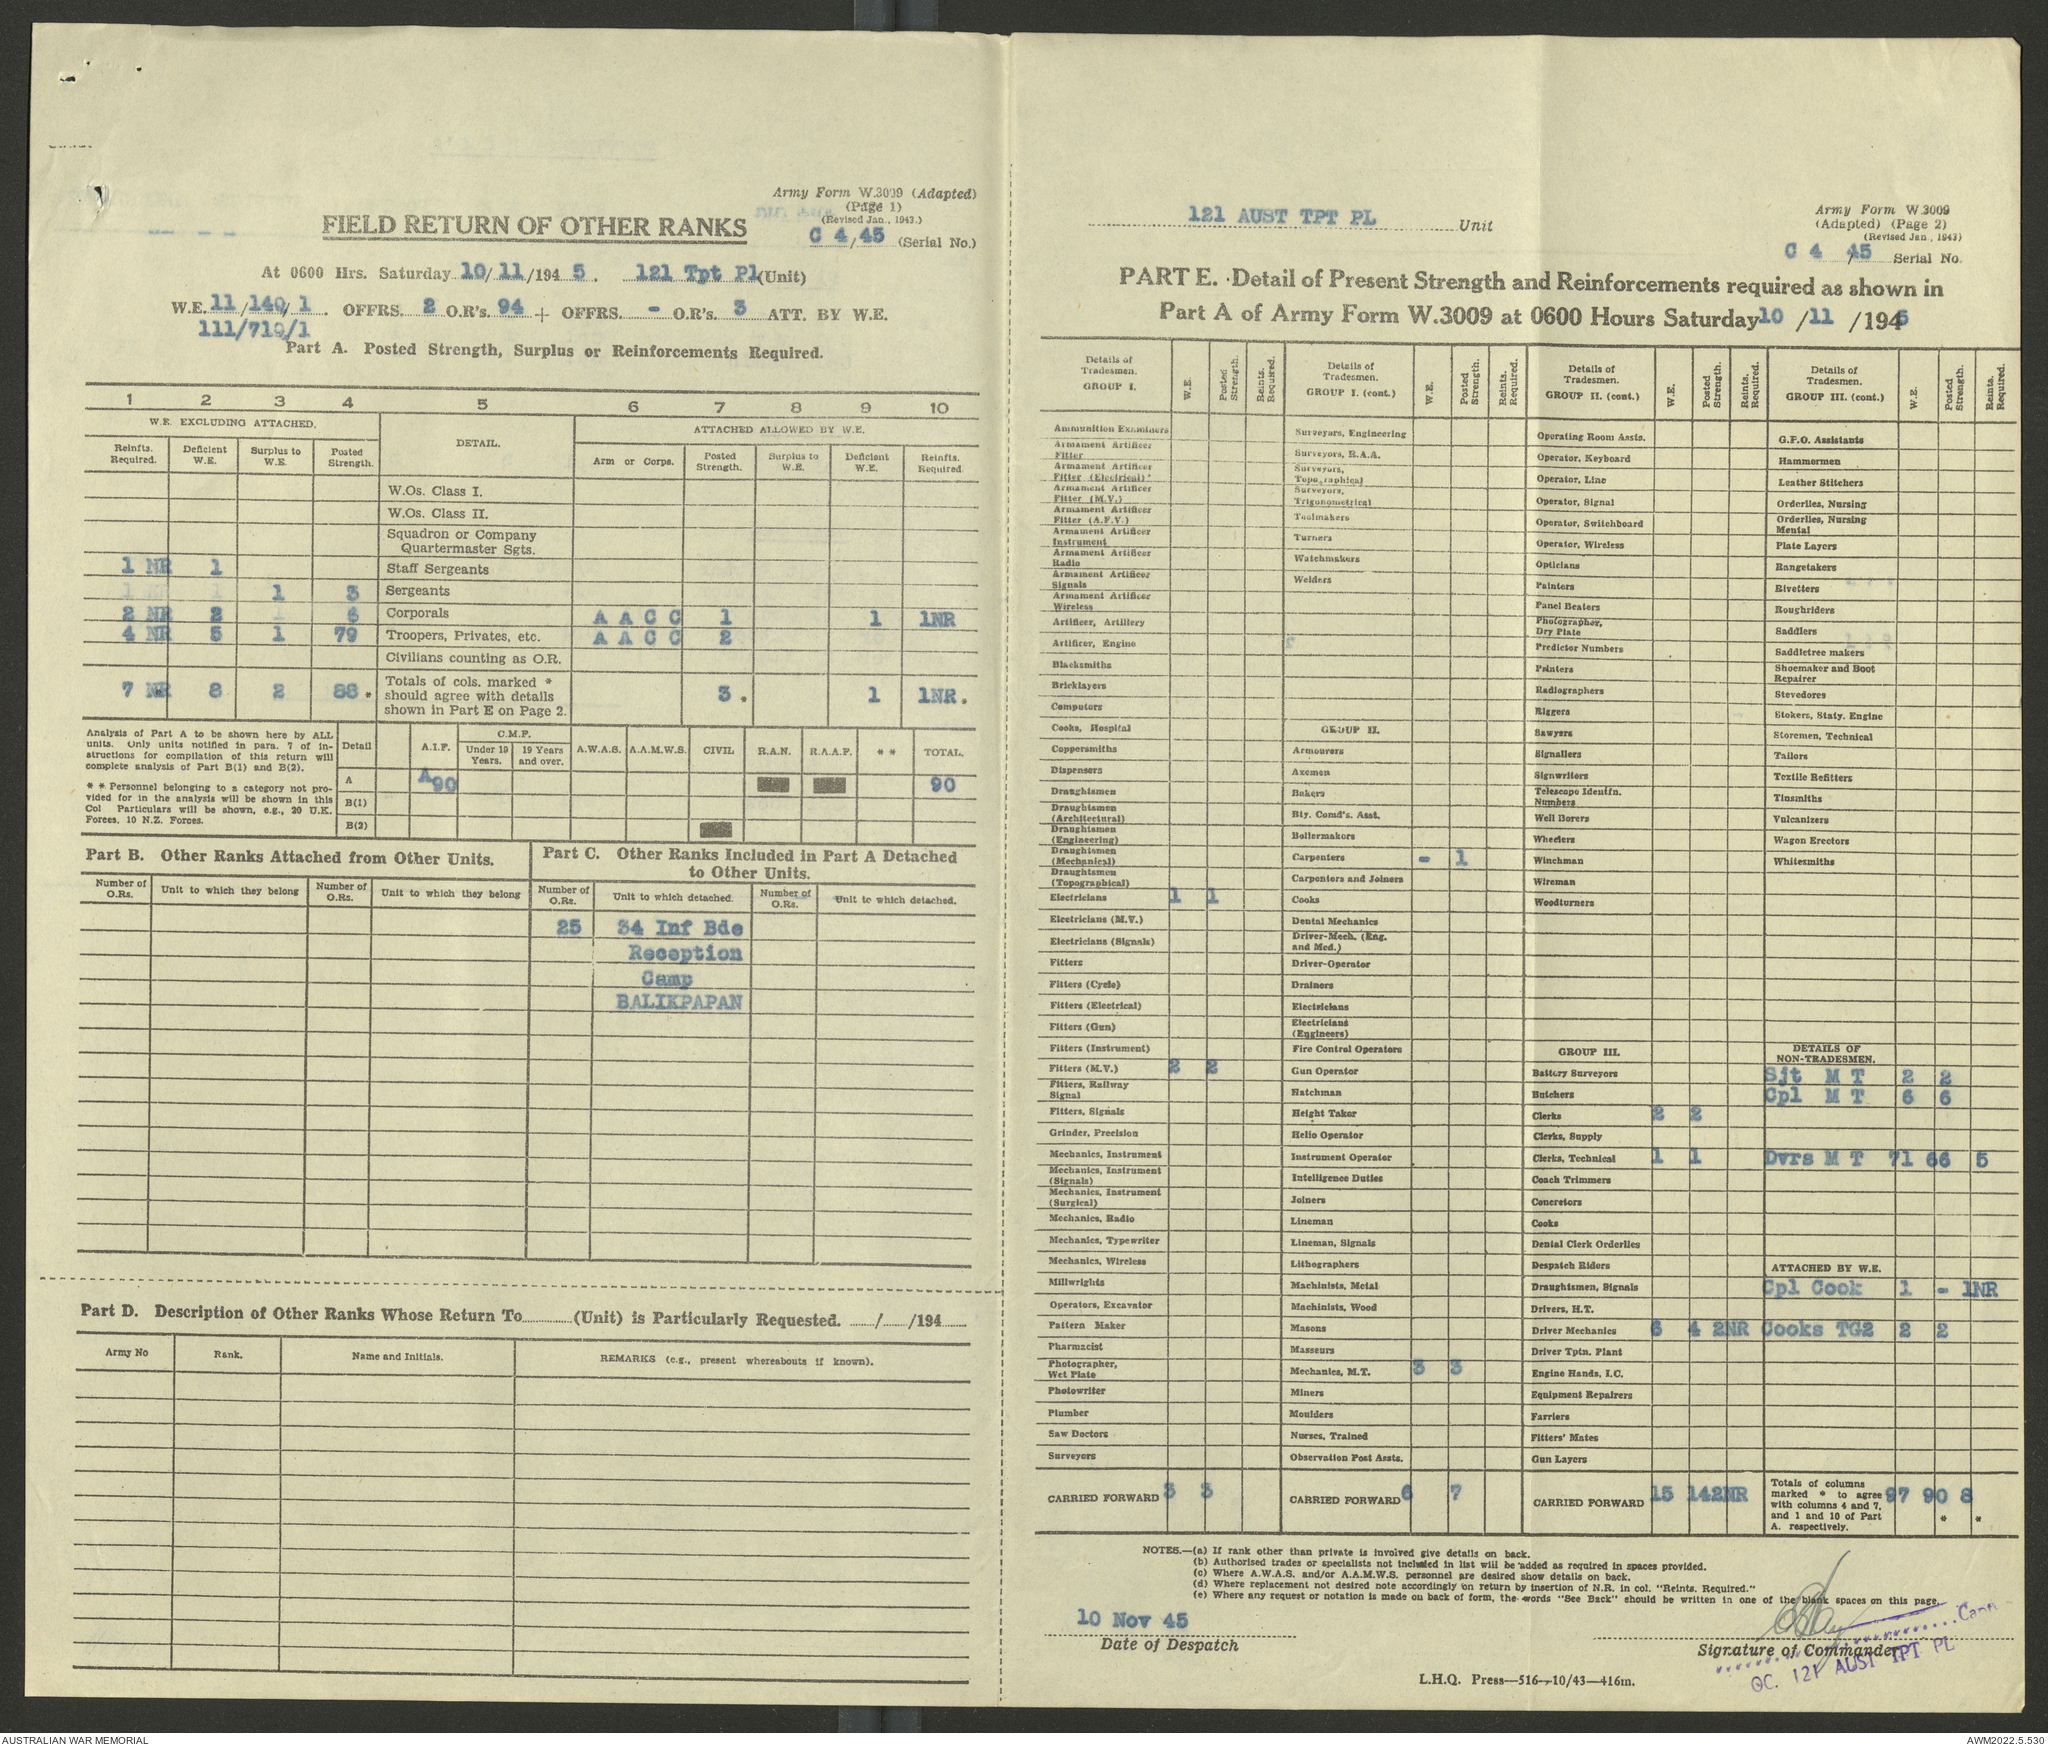 Army Form W.3009 (Adapted)
(Page 1)
(Revised Jan., 1943.)
FIELD RETURN OF OTHER RANKS
C 4/45 (Serial No.)
At 0600 Hrs. Saturday 10/11/194 5. 121 Tpt Pl (Unit)
W.E. 11/140/1. OFFRS. 2 O.R's. 94 + OFFRS. - O.R's. 3 ATT. BY W.E.
111/719/1
Part A. Posted Strength, Surplus or Reinforcements Required.
1 2 3 4 5 6 7 8 9 10
W.E. EXCLUDING ATTACHED. DETAIL. ATTACHED ALLOWED BY W.E.
Reinfts. Required. Deficient W.E. Surplus to W.E. Posted Strength. Arm or Corps. Posted Strength. Surplus to W.E. Deficient W.E. Reinfts. Required.
W.Os. Class I.
W.Os. Class II.
Squadron or Company
Quartermaster Sgts.
1 NR 1 Staff Sergeants
1 3 Sergeants
2 NR 2 6 Corporals A A C C 1 1 1NR
4 NR 5 1 79 Troopers, Privates, etc. A A C C 2
Civilians counting as O.R.
7 NR * 8 2 88 * Totals of cols. marked * should agree with details shown in Part E on Page 2. 3 * 1 1NR.
Analysis of Part A to be shown here by ALL
units. Only units notified in para. 7 of in-
structions for compilation of this return will
complete analysis of Part B(1) and B(2).
* * Personnel belonging to a category not pro-
vided for in the analysis will be shown in this
Col Particulars will be shown, e.g., 20 U.K.
Forces, 10 N.Z. Forces.
Detail A.I.F. C.M.F. Under 19 Years. 19 Years and over. A.W.A.S. A.A.M.W.S. CIVIL R.A.N. R.A.A.F. * * TOTAL.
A A90 90
B(1)
B(2)
Part B. Other Ranks Attached from Other Units.
Number of O.Rs. Unit to which they belong Number of O.Rs. Unit to which they belong
Part C. Other Ranks Included in Part A Detached
to Other Units.
Number of O.Rs. Unit to which detached. Number of O.Rs. Unit to which detached.
25 34 Inf Bde
Reception
Camp
BALIKPAPAN
Part D. Description of Other Ranks Whose Return To (Unit) is Particularly Requested. / /194
Army No Rank. Name and Initials. REMARKS (e.g., present whereabouts if known).
121 AUST TPT PL Unit
Army Form W.3009
(Adapted) (Page 2)
(Revised Jan., 1943)
C 4 /45 Serial No.
PART E. Detail of Present Strength and Reinforcements required as shown in
Part A of Army Form W.3009 at 0600 Hours Saturday 10 /11 /1945
Details of Tradesmen. GROUP I. W.E. Posted Strength. Reints. Required.
Ammunition Examiners
Armament Artificer Fitter
Armament Artificer Fitter (Electrical)
Armament Artificer Fitter (M.V.)
Armament Artificer Fitter (A.F.V.)
Armament Artificer Instrument
Armament Artificer Radio
Armament Artificer Signals
Armament Artificer Wireless
Artificer, Artillery
Artificer, Engine
Blacksmiths
Bricklayers
Computors
Cooks, Hospital
Coppersmiths
Dispensers
Draughtsmen
Draughtsmen (Architectural)
Draughtsmen (Engineering)
Draughtsmen (Mechanical)
Draughtsmen (Topographical)
Electricians 1 1
Electricians (M.V.)
Electricians (Signals)
Fitters
Fitters (Cycle)
Fitters (Electrical)
Fitters (Gun)
Fitters (Instrument)
Fitters (M.V.) 2 2
Fitters, Railway Signal
Fitters, Signals
Grinder, Precision
Mechanics, Instrument
Mechanics, Instrument (Signals)
Mechanics, Instrument (Surgical)
Mechanics, Radio
Mechanics, Typewriter
Mechanics, Wireless
Millwrights
Operators, Excavator
Pattern Maker
Pharmacist
Photographer, Wet Plate
Photowriter
Plumber
Saw Doctors
Surveyors
CARRIED FORWARD 3 3
Details of Tradesmen. GROUP I. (cont.) W.E. Posted Strength. Reints. Required.
Surveyors, Engineering
Surveyors, R.A.A.
Surveyors, Topographical
Surveyors, Trigonometrical
Toolmakers
Turners
Watchmakers
Welders
GROUP II.
Armourers
Axemen
Bakers
Bty. Comd's. Asst.
Boilermakers
Carpenters - 1
Carpenters and Joiners
Cooks
Dental Mechanics
Driver-Mech. (Eng. and Med.)
Driver-Operator
Drainers
Electricians
Electricians (Engineers)
Fire Control Operators
Gun Operator
Hatchman
Height Taker
Helio Operator
Instrument Operator
Intelligence Duties
Joiners
Lineman
Lineman, Signals
Lithographers
Machinists, Metal
Machinists, Wood
Masons
Masseurs
Mechanics, M.T. 3 3
Miners
Moulders
Nurses, Trained
Observation Post Assts.
CARRIED FORWARD 6 7
Details of Tradesmen. GROUP II. (cont.) W.E. Posted Strength. Reints. Required.
Operating Room Assts.
Operator, Keyboard
Operator, Line
Operator, Signal
Operator, Switchboard
Operator, Wireless
Opticians
Painters
Panel Beaters
Photographer, Dry Plate
Predictor Numbers
Printers
Radiographers
Riggers
Sawyers
Signallers
Signwriters
Telescope Identfn. Numbers
Well Borers
Wheelers
Winchman
Wireman
Woodturners
GROUP III.
Battery Surveyors
Butchers
Clerks 2 2
Clerks, Supply
Clerks, Technical 1 1
Coach Trimmers
Concretors
Cooks
Dental Clerk Orderlies
Despatch Riders
Draughtsmen, Signals
Drivers, H.T.
Driver Mechanics 6 4 2NR
Driver Tptn. Plant
Engine Hands, I.C.
Equipment Repairers
Farriers
Fitters' Mates
Gun Layers
CARRIED FORWARD 15 14 2NR
Details of Tradesmen. GROUP III. (cont.) W.E. Posted Strength. Reints. Required.
G.P.O. Assistants
Hammermen
Leather Stitchers
Orderlies, Nursing
Orderlies, Nursing Mental
Plate Layers
Rangetakers
Rivetters
Roughriders
Saddlers
Saddletree makers
Shoemaker and Boot Repairer
Stevedores
Stokers, Staty. Engine
Storemen, Technical
Tailors
Textile Refitters
Tinsmiths
Vulcanizers
Wagon Erectors
Whitesmiths
DETAILS OF NON-TRADESMEN.
Sjt M T 2 2
Cpl M T 6 6
Dvrs M T 71 66 5
ATTACHED BY W.E.
Cpl Cook 1 - 1NR
Cooks TG2 2 2
Totals of columns marked * to agree with columns 4 and 7, and 1 and 10 of Part A, respectively. 97 90 * 8 *
NOTES.—(a) If rank other than private is involved give details on back.
(b) Authorised trades or specialists not included in list will be added as required in spaces provided.
(c) Where A.W.A.S. and/or A.A.M.W.S. personnel are desired show details on back.
(d) Where replacement not desired note accordingly on return by insertion of N.R. in col. "Reints. Required."
(e) Where any request or notation is made on back of form, the words "See Back" should be written in one of the blank spaces on this page.
10 Nov 45
Date of Despatch
Signature of Commander
OC. 121 AUST TPT PL
L.H.Q. Press—516—10/43—416m.
AUSTRALIAN WAR MEMORIAL
AWM2022.5.530